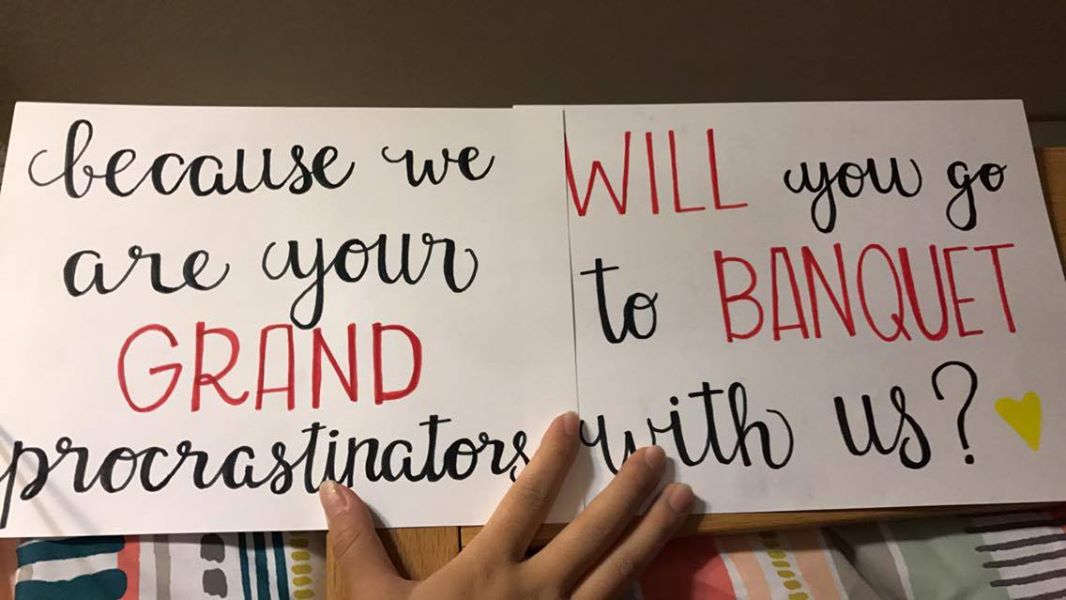 because we
are your
GRAND
procrastinators
WILL you go
to BANQUET
with us?